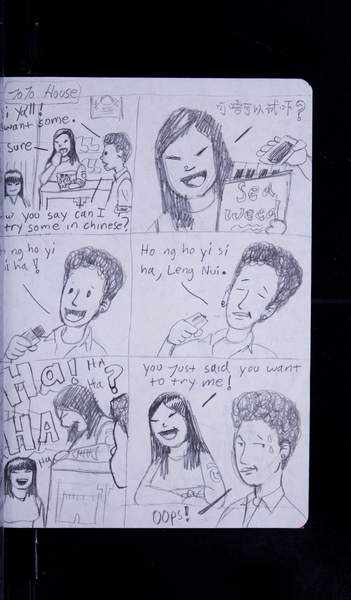 JoJo House
i Ya'll!
want some.
Sure
w you say can I
try some in chinese?
可唔可以试吓?
Sea
Weed
ng ho yi
i ha!
Ho ng ho yi si
ha, Leng Nui.
Ha! HA
Ha ?
HA
Ha
you Just said you want
to try me!
OOPS!